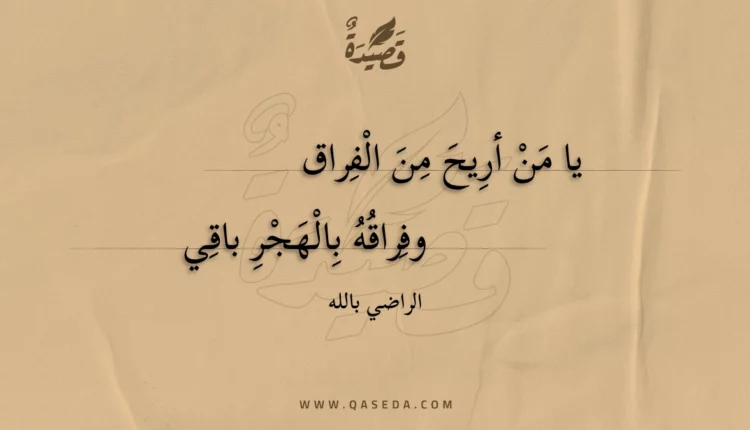 قَصِيْدَةٌ
يا مَنْ أرِيحَ مِنَ الْفِراق
وفِراقُهُ بِالْهَجْرِ باقِي
الراضي بالله
WWW.QASEDA.COM